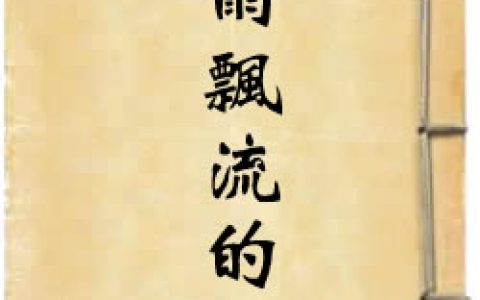 飄流的